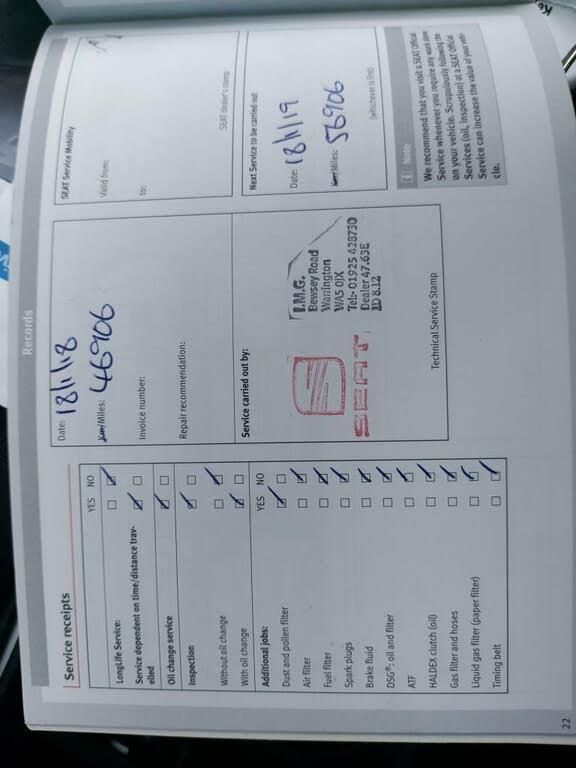 Records
Service receipts
YES NO
LongLife Service:
Service dependent on time/distance trav-
elled
Oil change service
Inspection
Without oil change
With oil change
Additional jobs: YES NO
Dust and pollen filter
Air filter
Fuel filter
Spark plugs
Brake fluid
DSG®: oil and filter
ATF
HALDEX clutch (oil)
Gas filter and hoses
Liquid gas filter (paper filter)
Timing belt
Date: 18/1/18
Km/Miles: 46906
Invoice number:
Repair recommendation:
Service carried out by:
SEAT
I.M.G.
Bewsey Road
Warrington
WA5 0JX
Tel:- 01925 428730
Dealer 47.63E
ID 8.12
Technical Service Stamp
SEAT Service Mobility
Valid from:
to:
SEAT dealer's stamp
Next Service to be carried out
Date: 18/1/19
Km/Miles: 56906
(whichever is first)
i Note
We recommend that you visit a SEAT Official
Service whenever you require any work done
on your vehicle. Scrupulously following the
Services (oil, inspection) at a SEAT Official
Service can increase the value of your vehi-
cle.
22